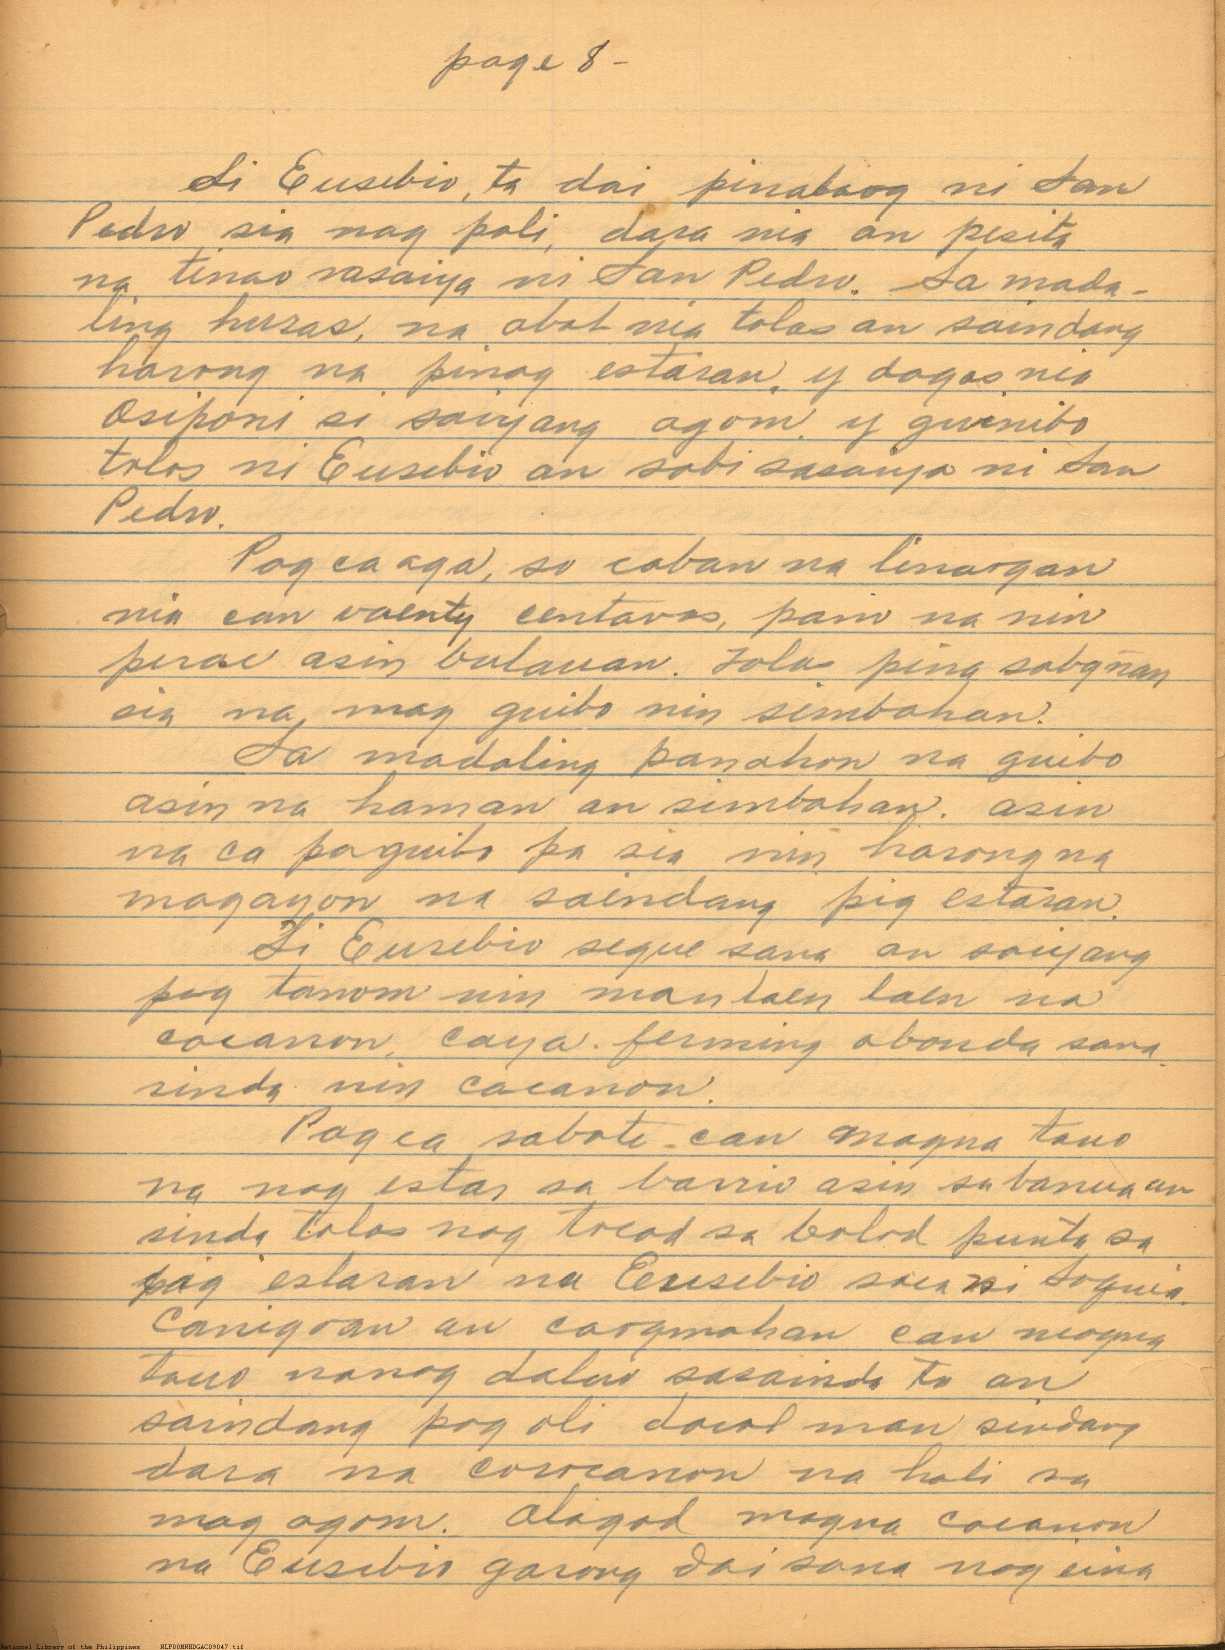 page 8 -
Si Eusebio, ta dai pinalaog ni San
Pedro sia nag poli, dara nia an pesita
na tinao sasaiya ni San Pedro. Sa mada-
ling huras, na abot nia tolos an saindang
harong na pinag estaran, y dagos nia
Osiponi si saiyang agom y guinibo
tolos ni Eusebio an sabi sasaiya ni San
Pedro.
Pag ca aga, so caban na linaogan
nia can vaenty centavos, pano na nin
perac asin bulauan. Tolos ping sabgñan
sia na mag guibo nin simbahan.
Sa madaling panahon na guibo
asin na haman an simbahan. asin
na ca paguibo pa sia nin harong na
magayon na saindang pig estaran.
Si Eusebio segue sana an saiyang
pag tanom nin manlaen laen na
cacanon, caya. ferming abonda sana
sinda nin cacanon.
Pag ca sabote can magna tauo
na nag estar sa barrio asin sa banuaan
sinda tolos nag tocad sa bolod punta sa
pag estaran na Eusebio saca si Soquia.
Canigoan an caogmahan can magna
tauo nanag dalao sasainda ta an
saindang pag oli dacol man sindang
dara na corocanon na hali sa
mag agom. Alagad magna cacanon
na Eusebio garong dai sana nag eina
National Library of the Philippines NLP00MNHDGAC09047.tif